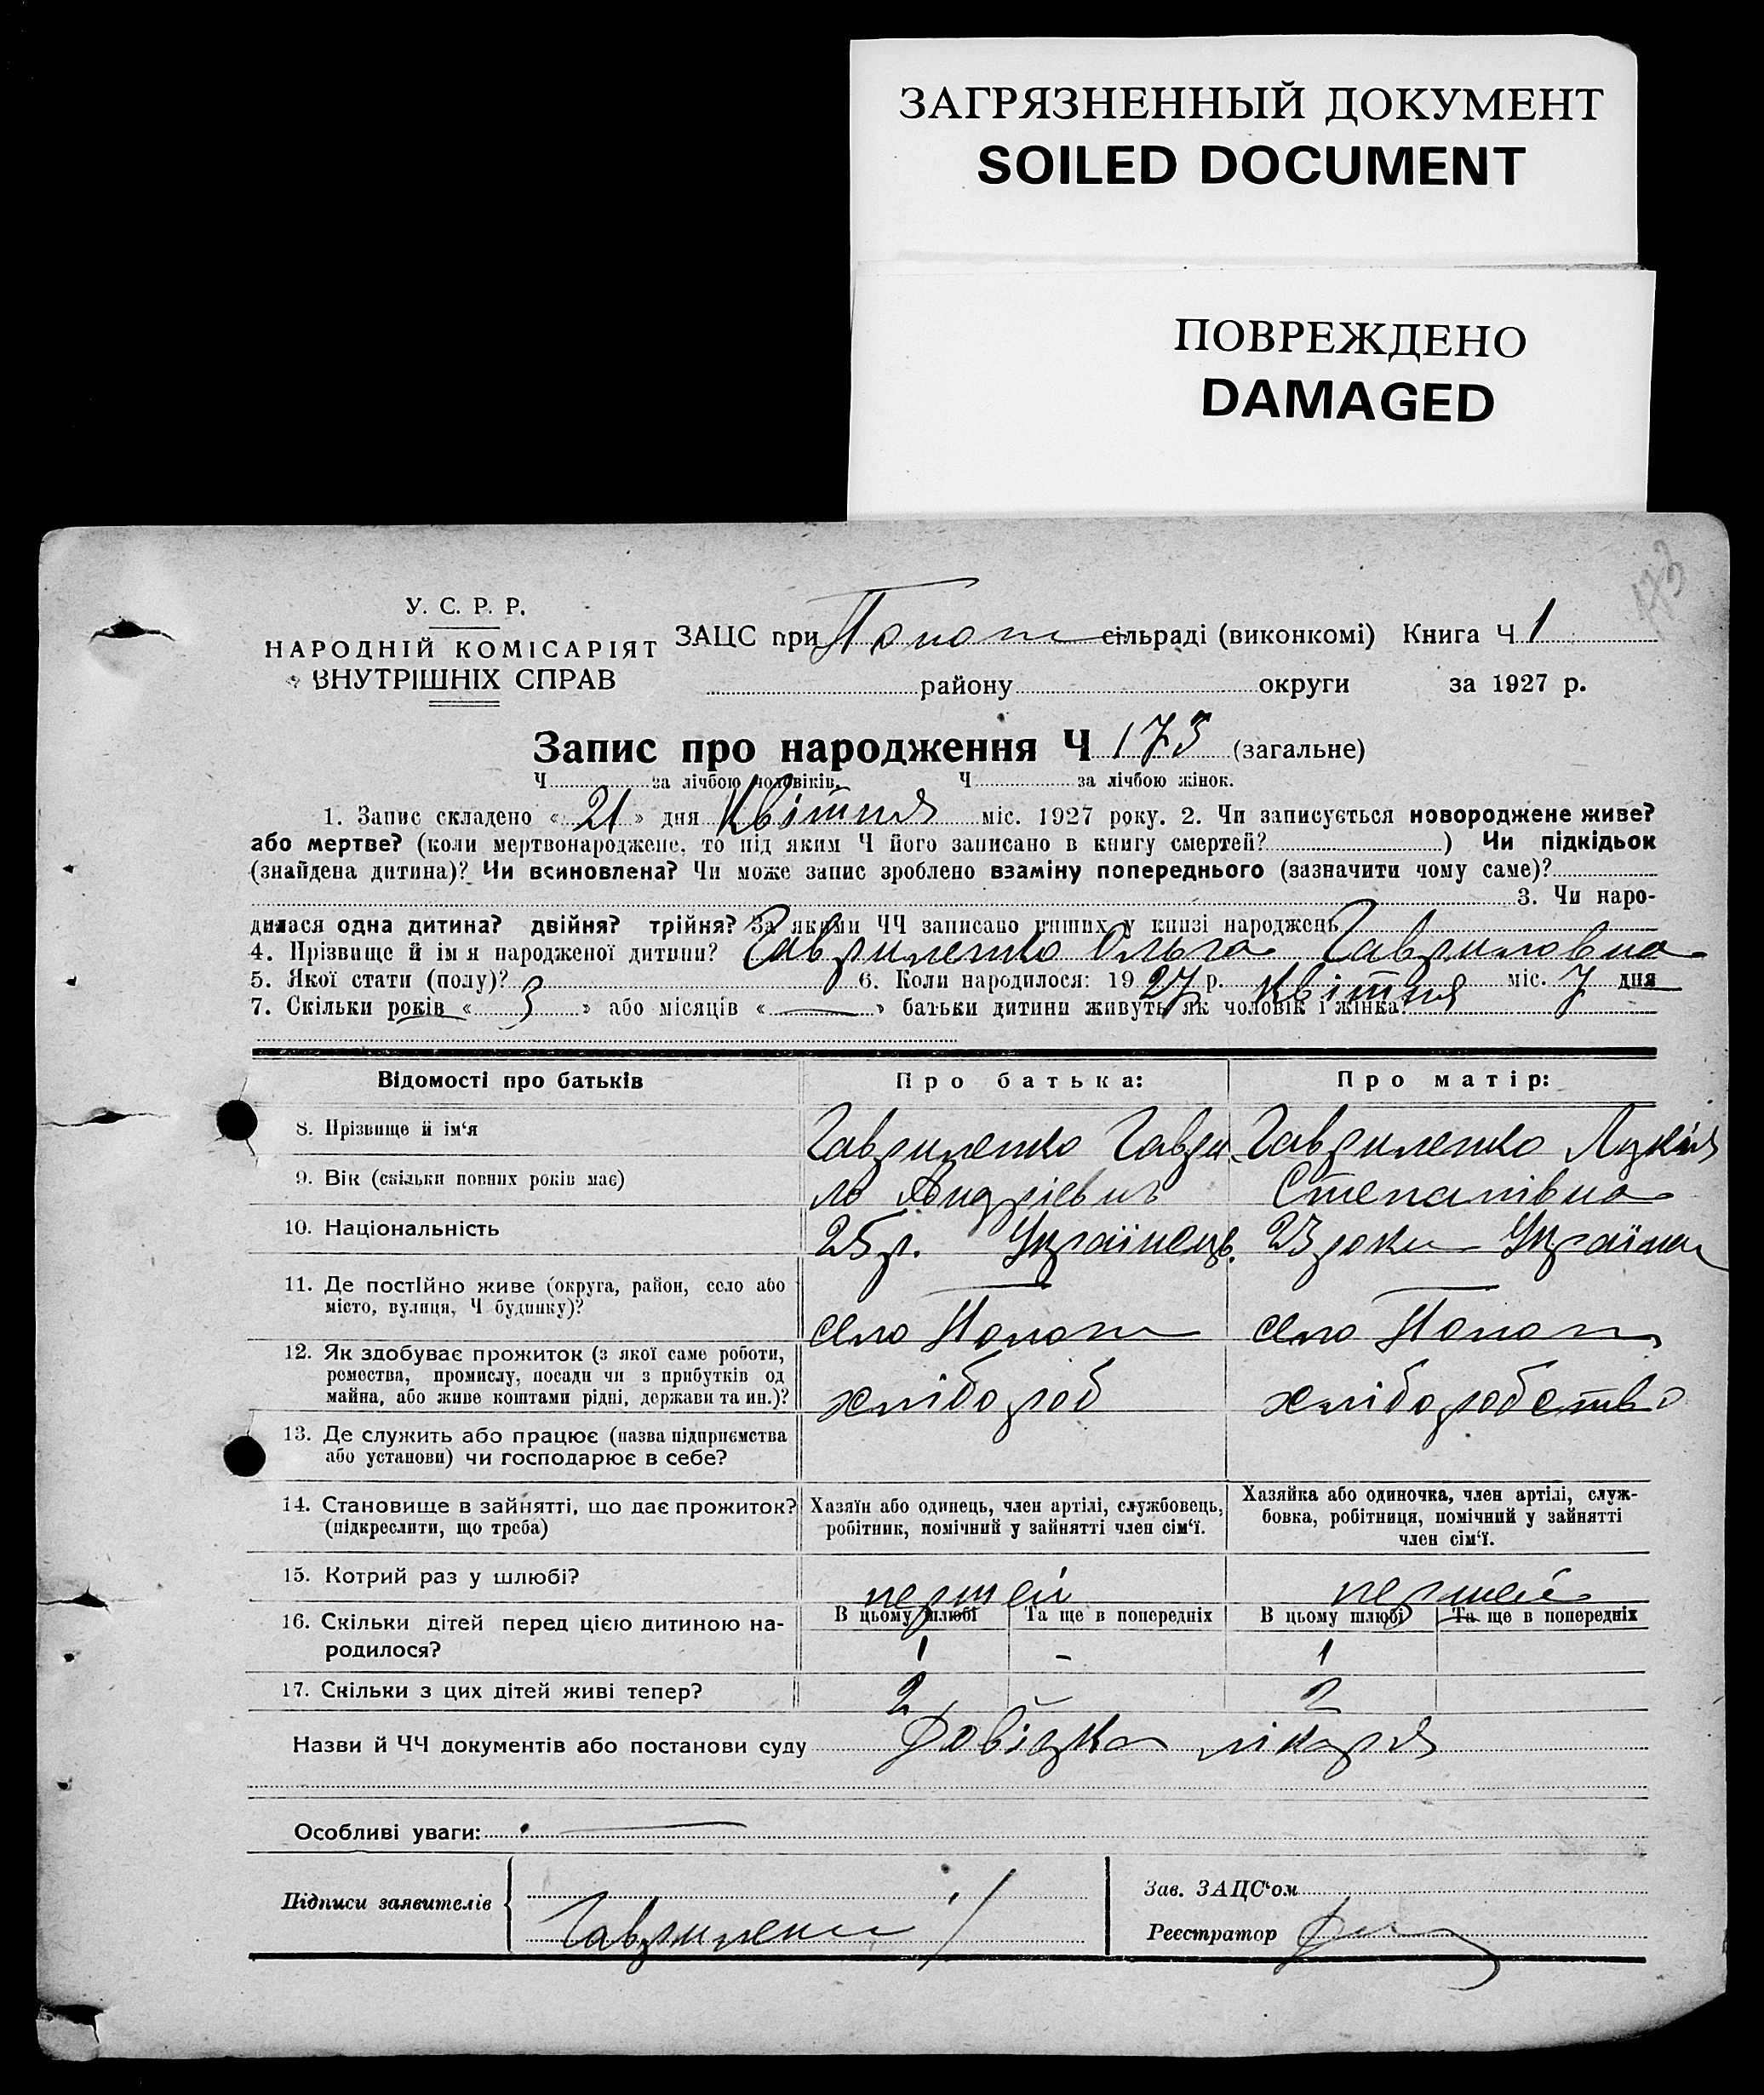 ЗАГРЯЗНЕННЫЙ ДОКУМЕНТ
SOILED DOCUMENT
ПОВРЕЖДЕНО
DAMAGED
173
У. С. Р. Р.
НАРОДНІЙ КОМІСАРІЯТ
ВНУТРІШНІХ СПРАВ
ЗАЦС при сільраді (виконкомі) Книга Ч 1
району округи за 1927 р.
Запис про народження Ч 173 (загальне)
Ч за лічбою чоловіків. Ч за лічбою жінок.
1. Запис складено « 21 » дня Квітня міс. 1927 року. 2. Чи записується новороджене живе?
або мертве? (коли мертвонароджене, то під яким Ч його записано в книгу смертей? ) Чи підкідьок
(знайдена дитина)? Чи всиновлена? Чи може запис зроблено взаміну попереднього (зазначити чому саме)?
3. Чи наро-
дилася одна дитина? двійня? трійня? За якими ЧЧ записано инших у книзі народжець
4. Прізвище й ім я народженої дитини? Гавриленко Ольга Гавриловна
5. Якої стати (полу)? 6. Коли народилося: 1927 р. Квітня міс. 7 дня
7. Скільки років « 3 » або місяців « — » батьки дитини живуть як чоловік і жінка?
Відомості про батьків Про батька: Про матір:
8. Прізвище й ім‘я Гавриленко Гаври- Гавриленко
9. Вік (скільки повних років має) ло Андрієвич Степанівна
10. Національність 25 р. Українець. 23 роки Українка
11. Де постійно живе (округа, район, село або
місто, вулиця, Ч будинку)? село село
12. Як здобуває прожиток (з якої саме роботи,
ремества, промислу, посади чи з прибутків од
майна, або живе коштами рідні, держави та ин.)? хлібороб хліборобство
13. Де служить або працює (назва підприємства
або установи) чи господарює в себе?
14. Становище в зайнятті, що дає прожиток?
(підкреслити, що треба)
Хазяїн або одинець, член артілі, службовець,
робітник, помічний у зайнятті член сім‘ї.
Хазяйка або одиночка, член артілі, служ-
бовка, робітниця, помічний у зайнятті
член сім‘ї.
15. Котрий раз у шлюбі? першей першей
16. Скільки дітей перед цією дитиною на-
родилося?
В цьому шлюбі Та ще в попередніх В цьому шлюбі Та ще в попередніх
1 - 1
17. Скільки з цих дітей живі тепер? 2 2
Назви й ЧЧ документів або постанови суду Довідка лікаря
Особливі уваги: —
Підписи заявителів Гавриленко
Зав. ЗАЦС‘ом
Реєстратор